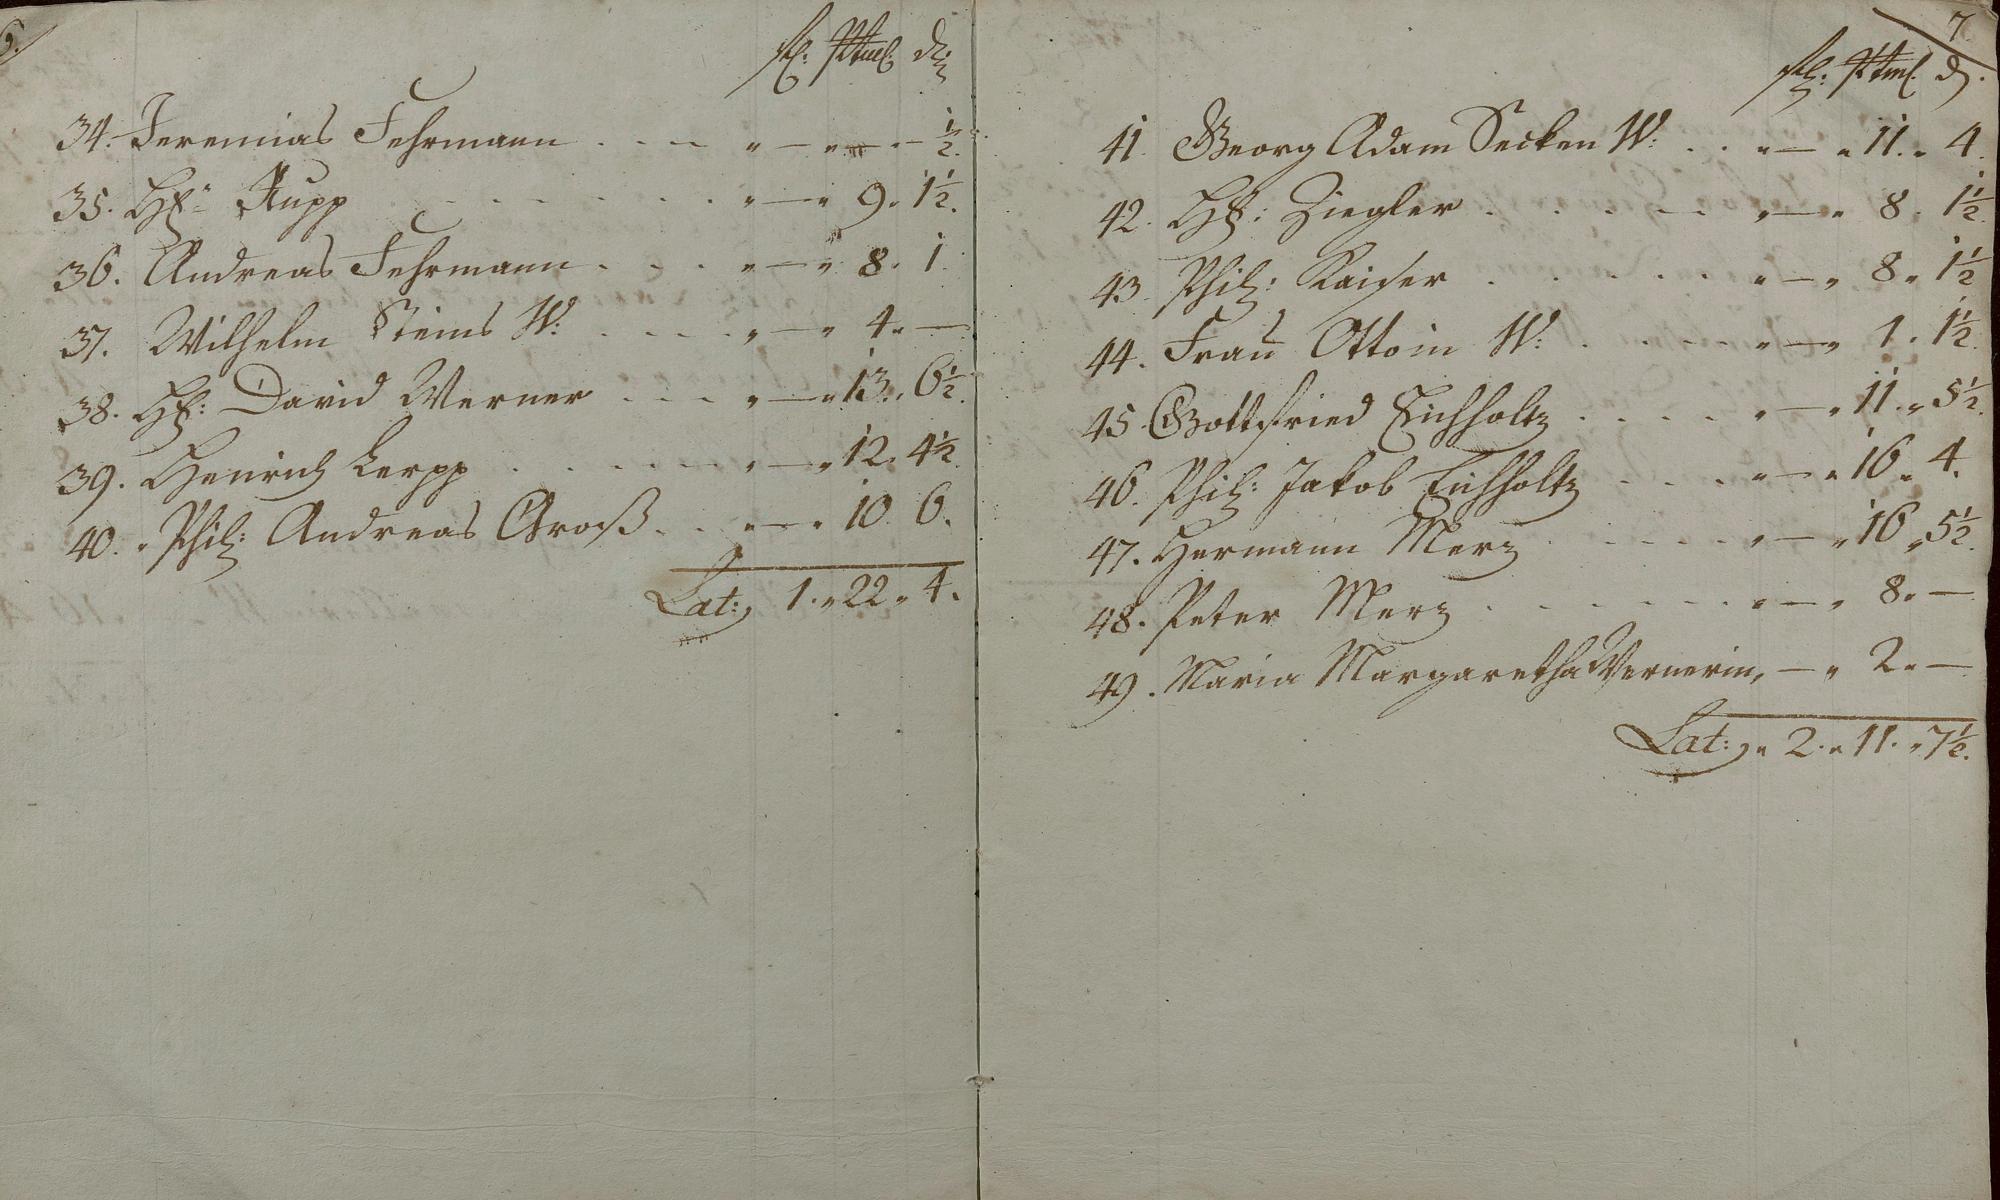 6.
fl: Stbl d:
34. Jeremias Fehrmann . . . . „ — „ — . — ½.
35. HE: Rupp . . . . . . . „ — „ 9. 1½.
36. Andreas Fehrmann . . . „ — „ 8. 1.
37. Wilhelm Steins W: . . . . „ — „ 4. —
38. HE: David Werner . . . . „ — „ 13. 6½.
39. Henrich Lerpp . . . . . . „ — „ 12. 4½.
40. Phil: Andreas Groß . . „ — „ 10. 6.
Lat: 1. „ 22 „ 4.
7.
fl: d.
41. Georg Adam Secken W: . . „ — „ 11. „ 4.
42. HE: Ziegler . . . . . „ — „ 8. 1½.
43. Phil: Kaiser . . . . . . „ — „ 8. 1½
44. Frau Ottoin W: . . . . . „ — „ 1. 1½.
45. Gottfried Eichholtz . . . . „ — „ 11. „ 5½.
46. Phil: Jakob Eichholtz . . . . „ — „ 16. 4.
47. Hermann Merz . . . . . „ — „ 16 „ 5½.
48. Peter Merz . . . . . . . „ — „ 8. —
49. Maria Margaretha Wernerin, — „ 2. —
Lat: „ 2. „ 11. „ 7½.